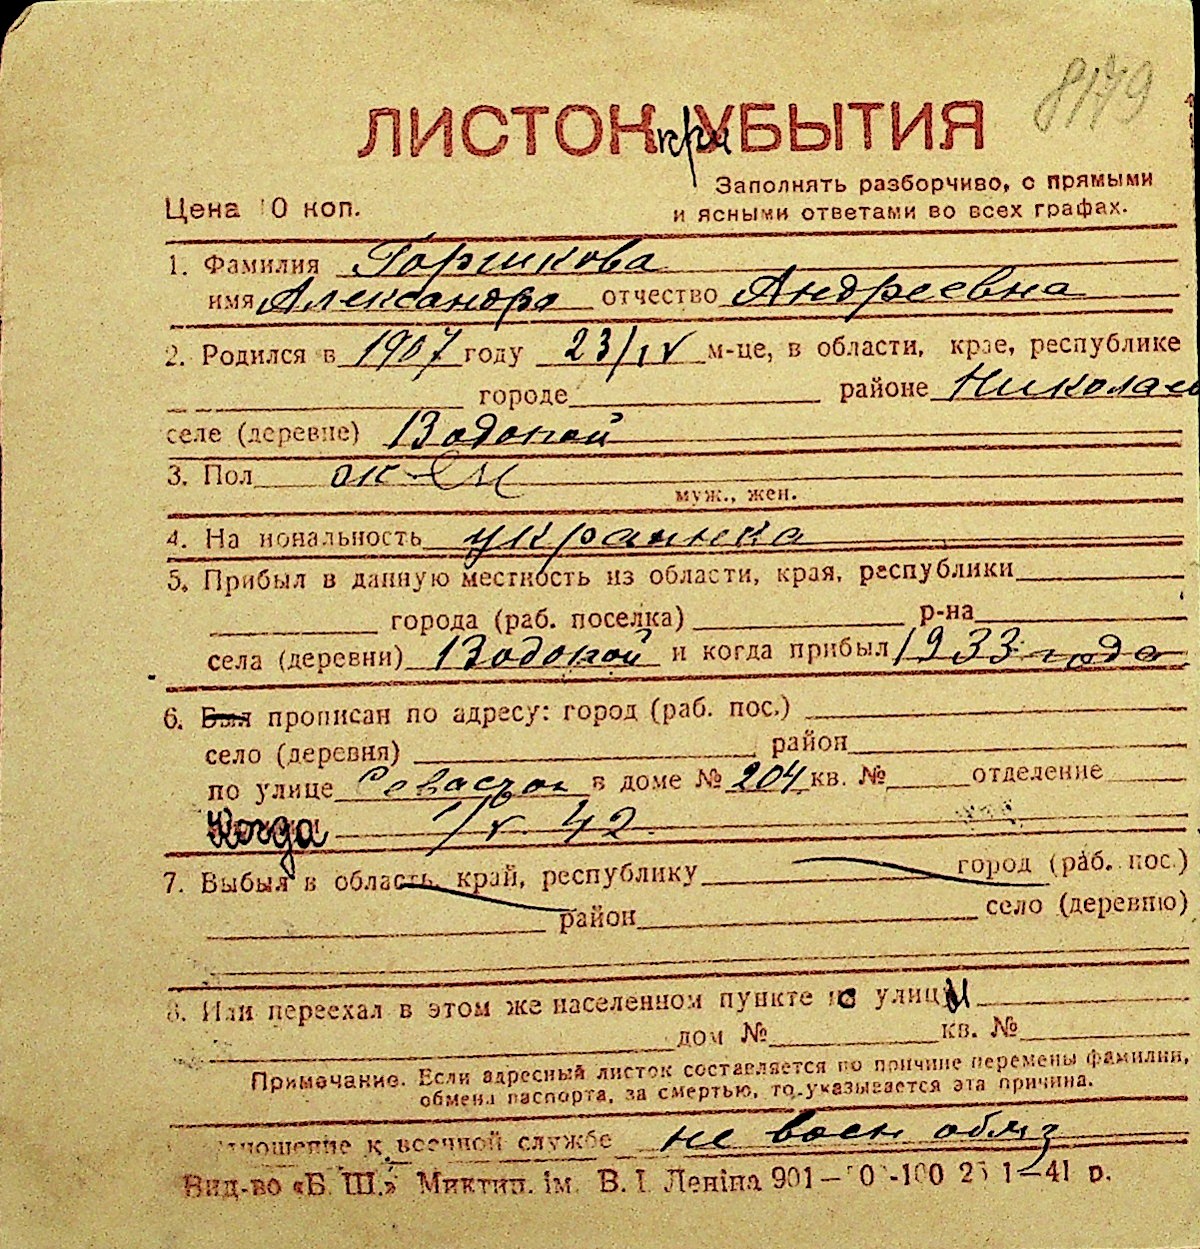 8179
ЛИСТОК при УБЫТИЯ
Заполнять разборчиво, с прямыми
Цена 10 коп. и ясными ответами во всех графах.
1. Фамилия Горшкова
имя Александра отчество Андреевна
2. Родился в 1907 году 23/IV м-це, в области, крае, республике
городе районе Николаев
селе (деревне) Водопой
3. Пол жен
муж., жен.
4. На иональность украинка
5. Прибыл в данную местность из области, края, республики
города (раб. поселка) р-на
села (деревни) Водопой и когда прибыл 1933 года
6. Был прописан по адресу: город (раб. пос.)
село (деревня) район
по улице Севастоп в доме № 204 кв. № отделение
Когда 1/V. 42.
7. Выбыл в область, край, республику город (раб. пос.)
район село (деревню)
8. Или переехал в этом же населенном пункте с улицы
дом № кв. №
Примечание. Если адресный листок составляется по причине перемены фамилии,
обмена паспорта, за смертью, то указывается эта причина.
тношение к военной службе не воен обяз
Вид-во «Б. Ш.» Миктип. ім. В. І. Леніна 901— 0 -100 2 1—41 р.